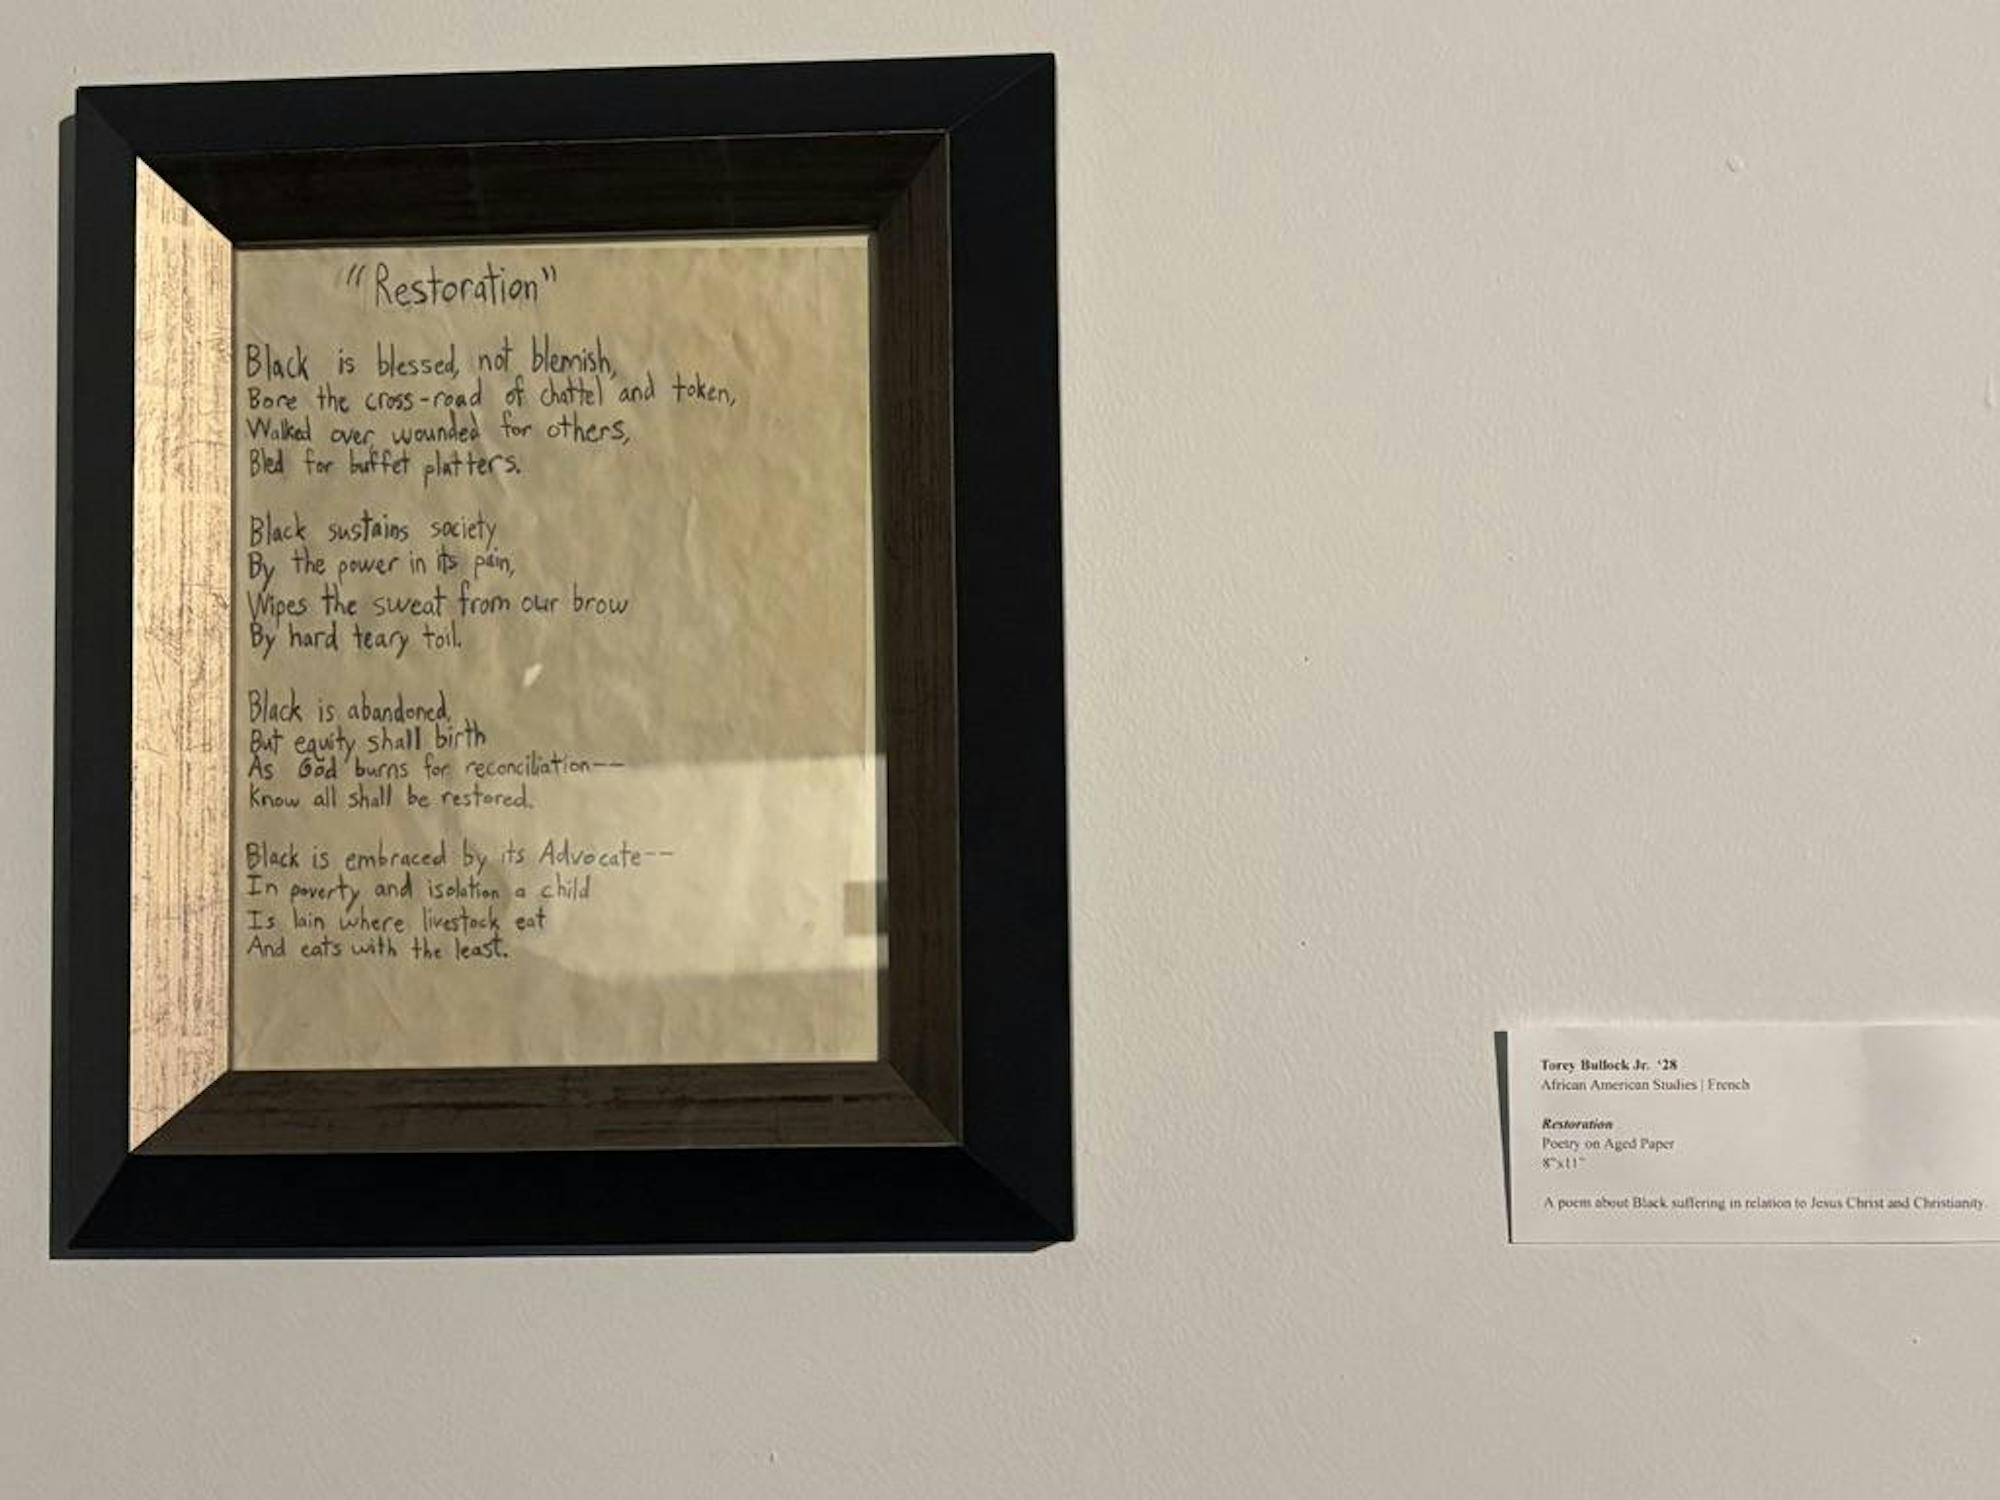 "Restoration"
Black is blessed, not blemish,
Bore the cross-road of chattel and token,
Walked over, wounded for others,
Bled for buffet platters.
Black sustains society
By the power in its pain,
Wipes the sweat from our brow
By hard teary toil.
Black is abandoned,
But equity shall birth
As God burns for reconciliation--
Know all shall be restored.
Black is embraced by its Advocate--
In poverty and isolation a child
Is lain where livestock eat
And eats with the least.
Torey Bullock Jr. '28
African American Studies | French
Restoration
Poetry on Aged Paper
8"x11"
A poem about Black suffering in relation to Jesus Christ and Christianity.